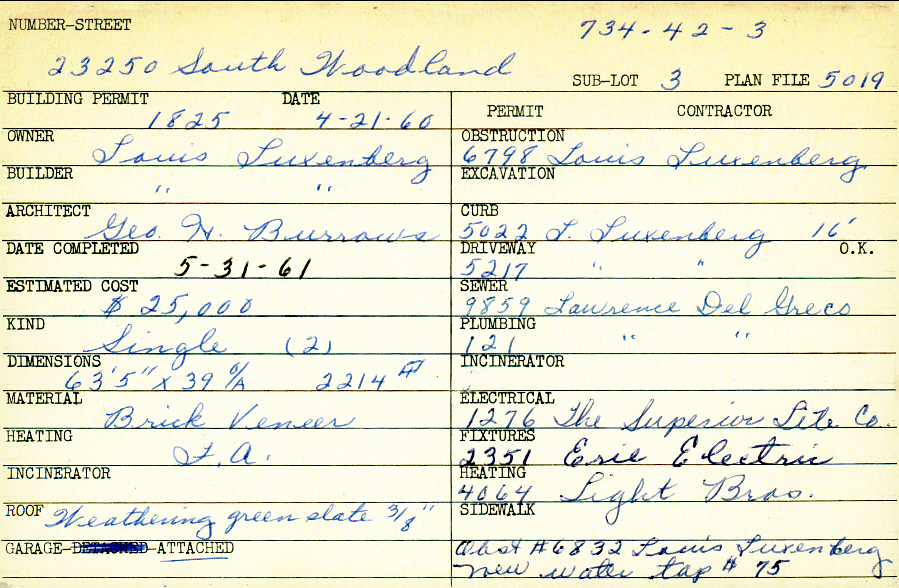 NUMBER-STREET
734-42-3
23250 South Woodland
SUB-LOT 3 PLAN FILE 5019
BUILDING PERMIT DATE
1825 4-21-60
OWNER
Louis Luxenberg
BUILDER
" "
ARCHITECT
Geo. H. Burrows
DATE COMPLETED
5-31-61
ESTIMATED COST
$ 25,000
KIND
Single (2)
DIMENSIONS
63'5" x 39 O/A 2214
MATERIAL
Brick Veneer
HEATING
F.A.
INCINERATOR
ROOF Weathering green slate 3/8"
GARAGE-DETACHED-ATTACHED
PERMIT CONTRACTOR
OBSTRUCTION
6798 Louis Luxenberg
EXCAVATION
CURB
5022 L. Luxenberg 16'
DRIVEWAY O.K.
5217 " "
SEWER
9859 Lawrence Del Greco
PLUMBING
121 " "
INCINERATOR
ELECTRICAL
1276 The Superior Lite Co.
FIXTURES
2351 Erie Electric
HEATING
4064 Light Bros.
SIDEWALK
Obst #6832 Louis Luxenberg
New water tap # 75